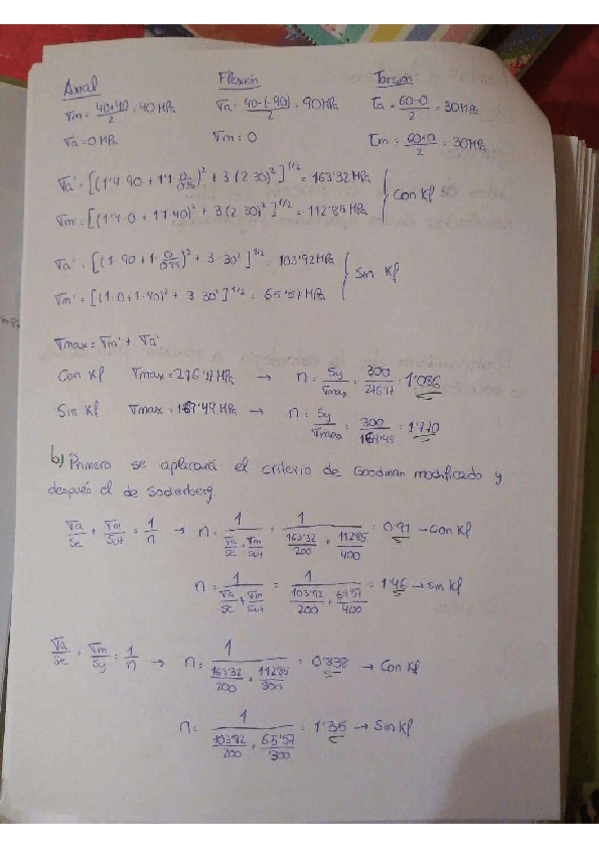 Axial Flexión Torsión
σm = (40+40)/2 = 40 MPa σa = (90-(-90))/2 = 90 MPa τa = (60-0)/2 = 30 MPa
σa = 0 MPa σm = 0 τm = (60+0)/2 = 30 MPa
σa' = [(1'4·90 + 1'1·0/0'85)² + 3(2·30)²]^1/2 = 163'32 MPa
Con Kf
σm' = [(1'4·0 + 1'1·40)² + 3(2·30)²]^1/2 = 112'85 MPa
σa' = [(1·90 + 1·0/0'85)² + 3·30²]^1/2 = 103'92 MPa
Sin Kf
σm' = [(1·0 + 1·40)² + 3·30²]^1/2 = 65'57 MPa
σmax = σm' + σa'
Con Kf σmax = 276'17 MPa → n = Sy/σmax = 300/276'17 = 1'086
Sin Kf σmax = 169'49 MPa → n = Sy/σmax = 300/169'49 = 1'770
b) Primero se aplicará el criterio de Goodman modificado y
después el de Soderberg.
σa/Se + σm/Sut = 1/n → n = 1/(σa/Se + σm/Sut) = 1/(163'32/200 + 112'85/400) = 0'91 → Con Kf
n = 1/(σa/Se + σm/Sut) = 1/(103'92/200 + 65'57/400) = 1'46 → Sin Kf
σa/Se + σm/Sy = 1/n → n = 1/(163'32/200 + 112'85/300) = 0'838 → Con Kf
n = 1/(103'92/200 + 65'57/300) = 1'35 → Sin Kf